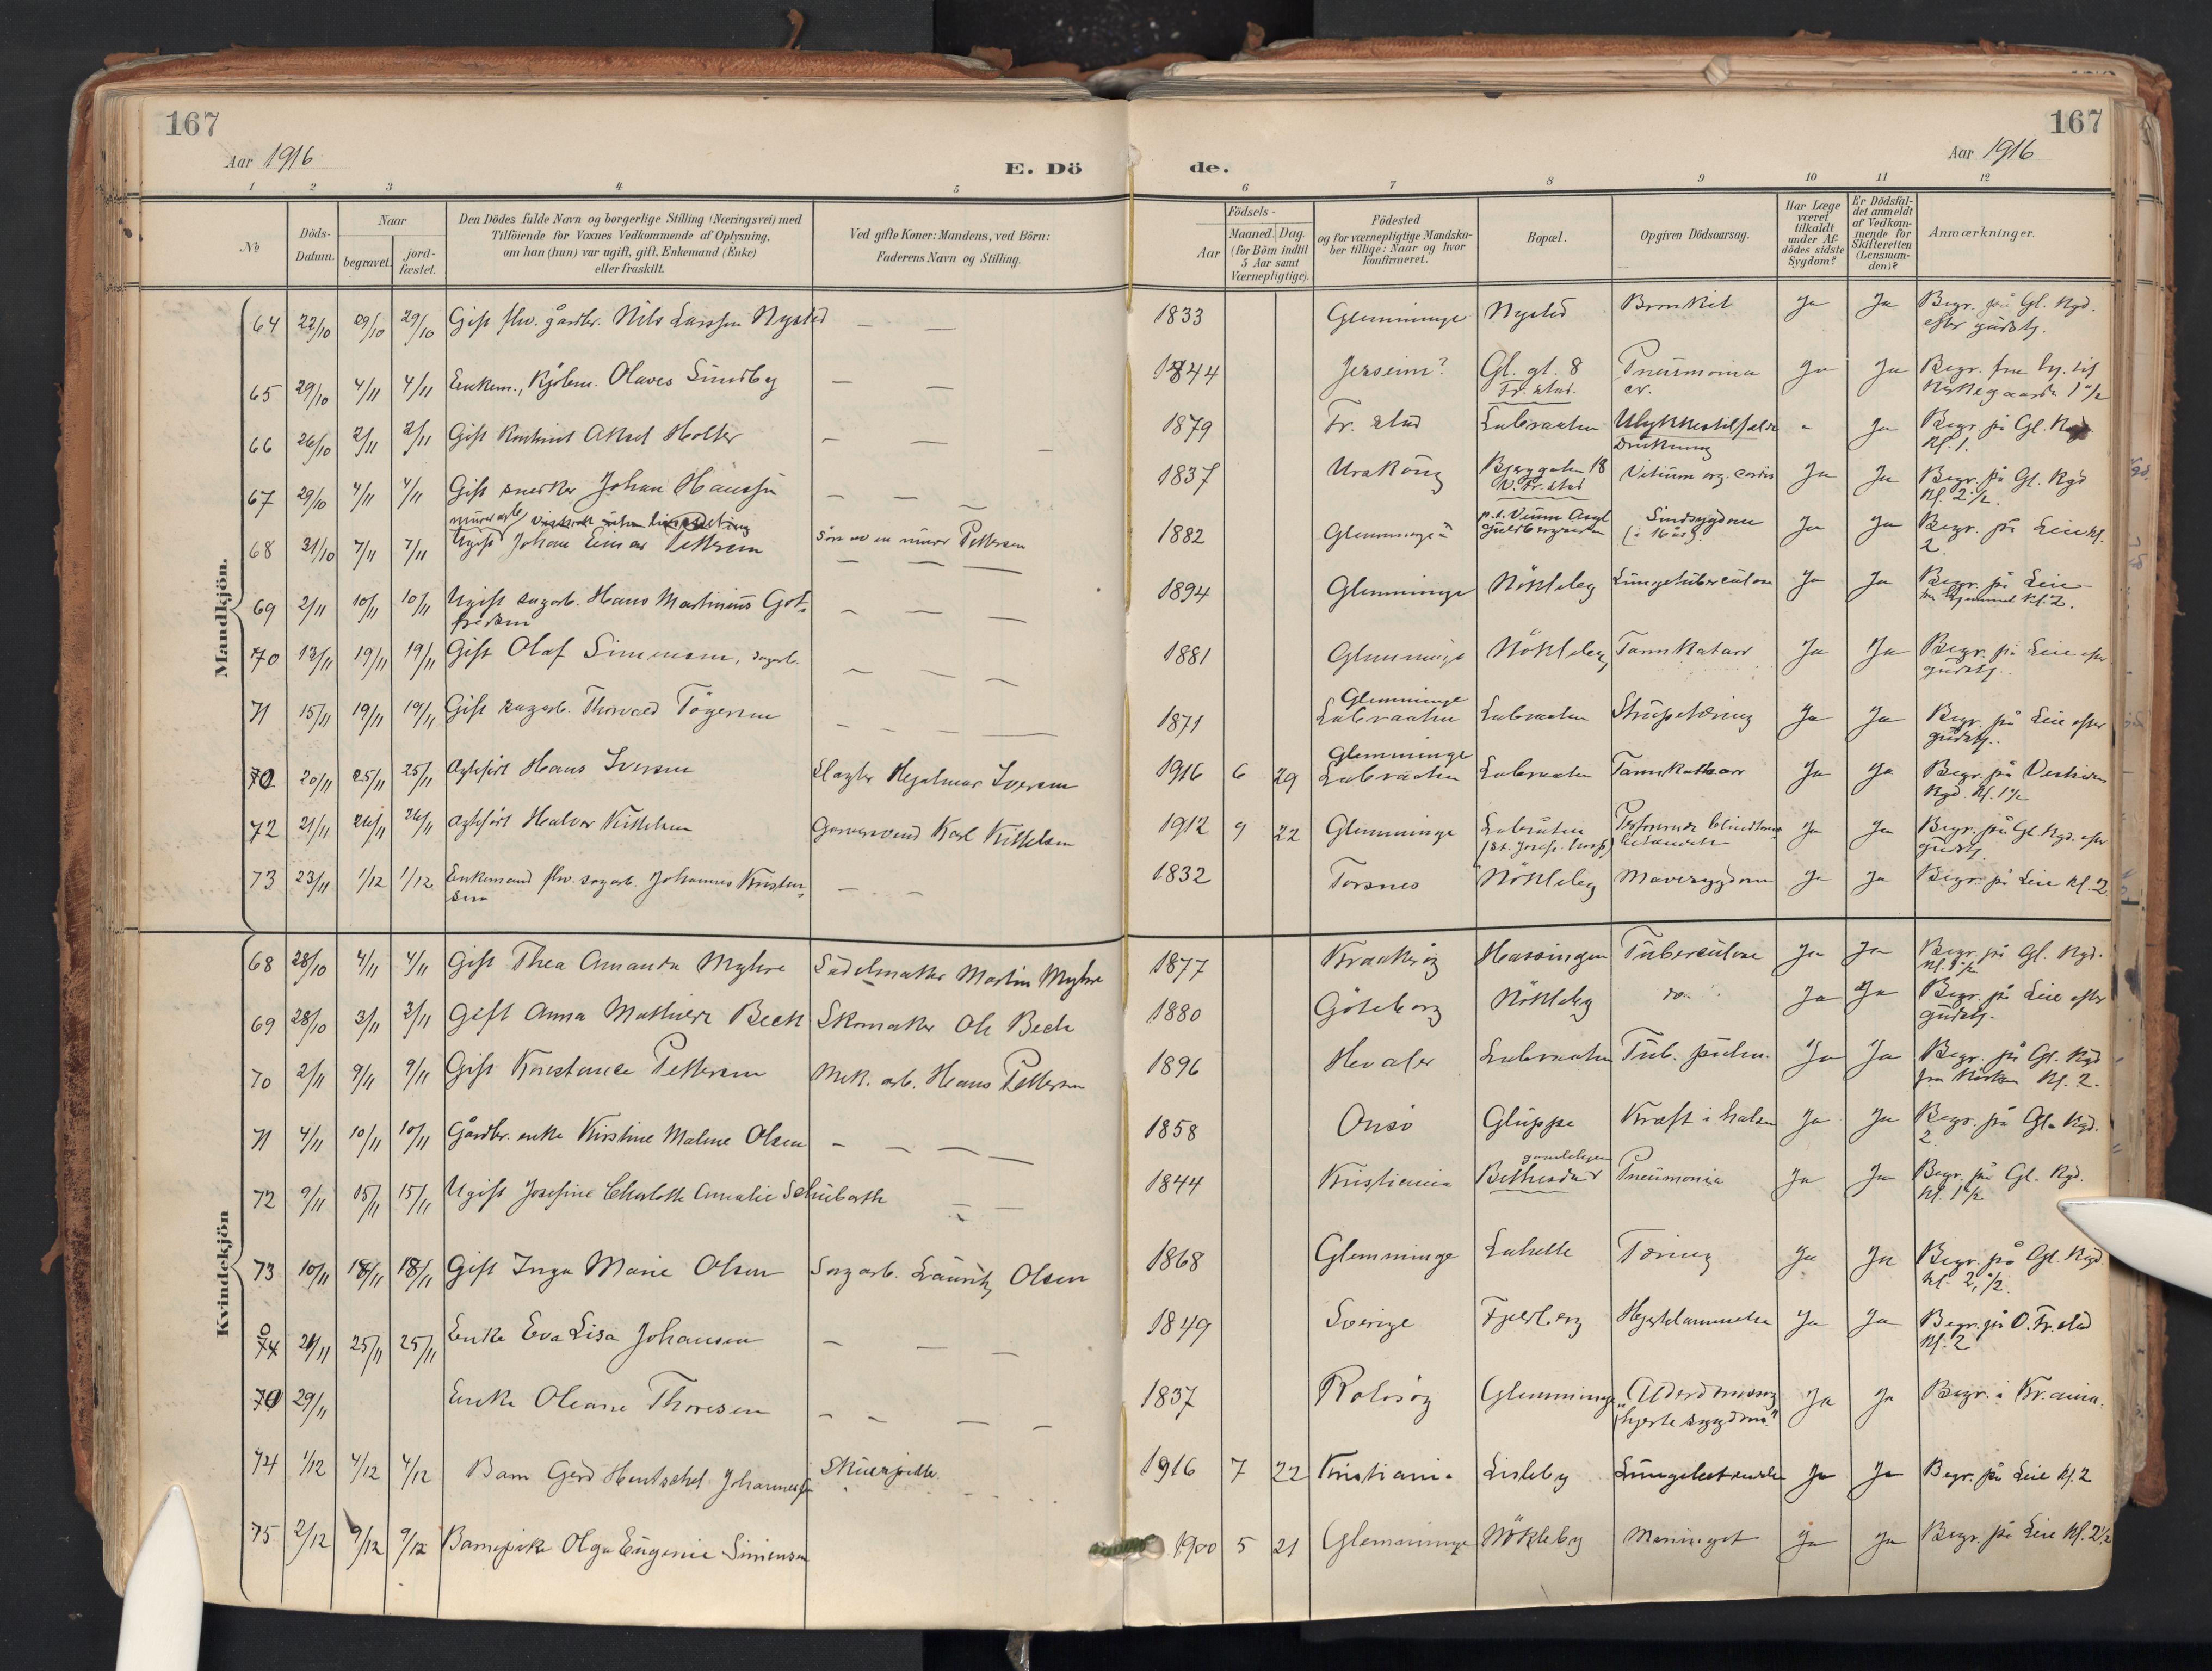 167
167
Aar 1916
E. Dö
de.
Aar 1916
1 2 3 4 5 6 7 8 9 10 11 12
№
Döds-
Datum.
Naar
begravet.
jord-
fæstet.
Den Dödes fulde Navn og borgerlige Stilling (Næringsvei) med
Tilföiende for Voxnes Vedkommende af Oplysning,
om han (hun) var ugift, gift, Enkemand (Enke)
eller fraskilt.
Ved gifte Koner: Mandens, ved Börn:
Faderens Navn og Stilling.
Födsels-
Aar
Maaned.
Dag.
(for Börn indtil
5 Aar samt
Værnepligtige).
Födested
og for værnepligtige Mandska-
ber tillige: Naar og hvor
konfirmeret.
Bopæl.
Opgiven Dödsaarsag.
Har Læge
været
tilkaldt
under Af-
dödes sidste
Sygdom?
Er Dödsfal-
det anmeldt
af Vedkom-
mende for
Skifteretten
(Lensman-
den)?
Anmærkninger.
Mandkjön.
64 22/10 29/10 29/10 Gift fhv. gårdbr. Nils Larssen Nysted — — 1833 Glemminge Nysted Bronkit Ja Ja Begr. på Gl. Kgd.
efter gudstj.
65 29/10 4/11 4/11 Enkem., Kjøbm. Olaves Sundby — — 1844 Jerseim? Gl. gt. 8 Pneumonia Ja Ja Begr. fra
Fr. stad. cr.
66 26/10 2/11 2/11 Gift Aksel Holter — — 1879 Fr. stad Labraaten Ulykkestilfælde Ja Begr på Gl. Kgd
Drukning Kl. 1.
67 29/10 4/11 4/11 Gift snedker Johan Hansen — — 1837 Urskoug Bjerggaten 18 Vitium org. cordis Ja Ja Begr. på Gl. Kgd
V. Fr. stad Kl. 2 1/2.
murerarb.
68 31/10 7/11 7/11 Ugift Johan Einar Pettersen Søn av en murer Pettersen 1882 Glemminge Sindsygdom Ja Ja Begr. på Leie kl.
(i 16 år). 2.
69 2/11 10/11 10/11 Ugift sagarb. Hans Martinius Got- — — 1894 Glemminge Nökleby Lungetuberculose Ja Ja Begr. på Leie
fredsen fra hjemmet kl. 2.
70 13/11 19/11 19/11 Gift Olaf Simensen, sagarb. — — 1881 Glemminge Nökleby Tarmkatarr Ja Ja Begr. på Leie efter
gudstj.
71 15/11 19/11 19/11 Gift sagarb. Thorvald Tögersen — — 1871 Glemminge Labraaten Strupetæring Ja Ja Begr. på Leie efter
Labraaten gudstj.
70 20/11 25/11 25/11 Ægtefödt Hans Iversen Slagter Hjalmar Iversen 1916 6 29 Glemminge Labraaten Tarmkatharr Ja Ja Begr på Vestsidens
Labraaten Kgd. Kl. 1 1/2
72 21/11 26/11 26/11 Ægtefödt Halvor Kittelsen Garversvend Karl Kittelsen 1912 9 22 Glemminge Labraten Ja Ja Begr. på Gl. Kgd. efter
(St. Josef. hosp) gudstj.
73 23/11 1/12 1/12 Enkemand fhv. sagarb. Johannes Kristen- — — 1832 Torsnes Nökleby Mavesygdom Ja Ja Begr. på Leie Kl. 2
sen
Kvindekjön
68 28/10 4/11 4/11 Gift Thea Amanda Myhre Sadelmaker Martin Myhre 1877 Kraakeröy Hassingen Tuberculose Ja Ja Begr. på Gl. Kgd.
Kl. 1 1/2
69 28/10 3/11 3/11 Gift Anna Mathilde Bech Skomaker Ole Bech 1880 Göteborg Nökleby do. Ja Ja Begr. på Leie efter
gudstj.
70 2/11 9/11 9/11 Gift Konstance Pettersen Mek. arb. Hans Pettersen 1896 Hvaler Labraaten Tub. pulm. Ja Ja Begr. på Gl. Kgd
fra Kirken Kl. 2.
71 4/11 10/11 10/11 Gårdbr. enke Kirstine Malene Olsen — — 1858 Onsö Gluppe Kræft i halsen Ja Ja Begr. på Gl. Kgd.
2.
72 9/11 15/11 15/11 Ugift Josefine Charlotte Amalie Schubarth — — 1844 Kristiania Bethesda Pneumonia Ja Ja Begr. på Gl. Kgd.
Kl. 1 1/2
73 10/11 18/11 18/11 Gift Inga Marie Olsen Sagarb. Lauritz Olsen 1868 Glemminge Lahelle Tæring Ja Ja Begr. på Gl. Kgd.
Kl. 2 1/2.
74 21/11 25/11 25/11 Enke Eva Lisa Johansen — — 1849 Sverige Fjeldberg Hjertelammelse Ja Ja Begr. på O. Fr. stad
Kl. 2
70 29/11 Enke Oleane Thoresen — — 1837 Rolvsöy Glemminge Alderdomssvag Ja Ja Begr. i Kr.ania.
"hjertesygdom"
74 1/12 4/12 4/12 Barn Gerd Hentschel Johannessen Skuespiller 1916 7 22 Kristiania Lisleby Lungebetændelse Ja Ja Begr. på Leie kl. 2
75 2/12 9/12 9/12 Barnepike Olga Eugenie Simensen 1900 5 21 Glemminge Nökleby Meningit Ja Ja Begr. på Leie Kl. 2 1/2